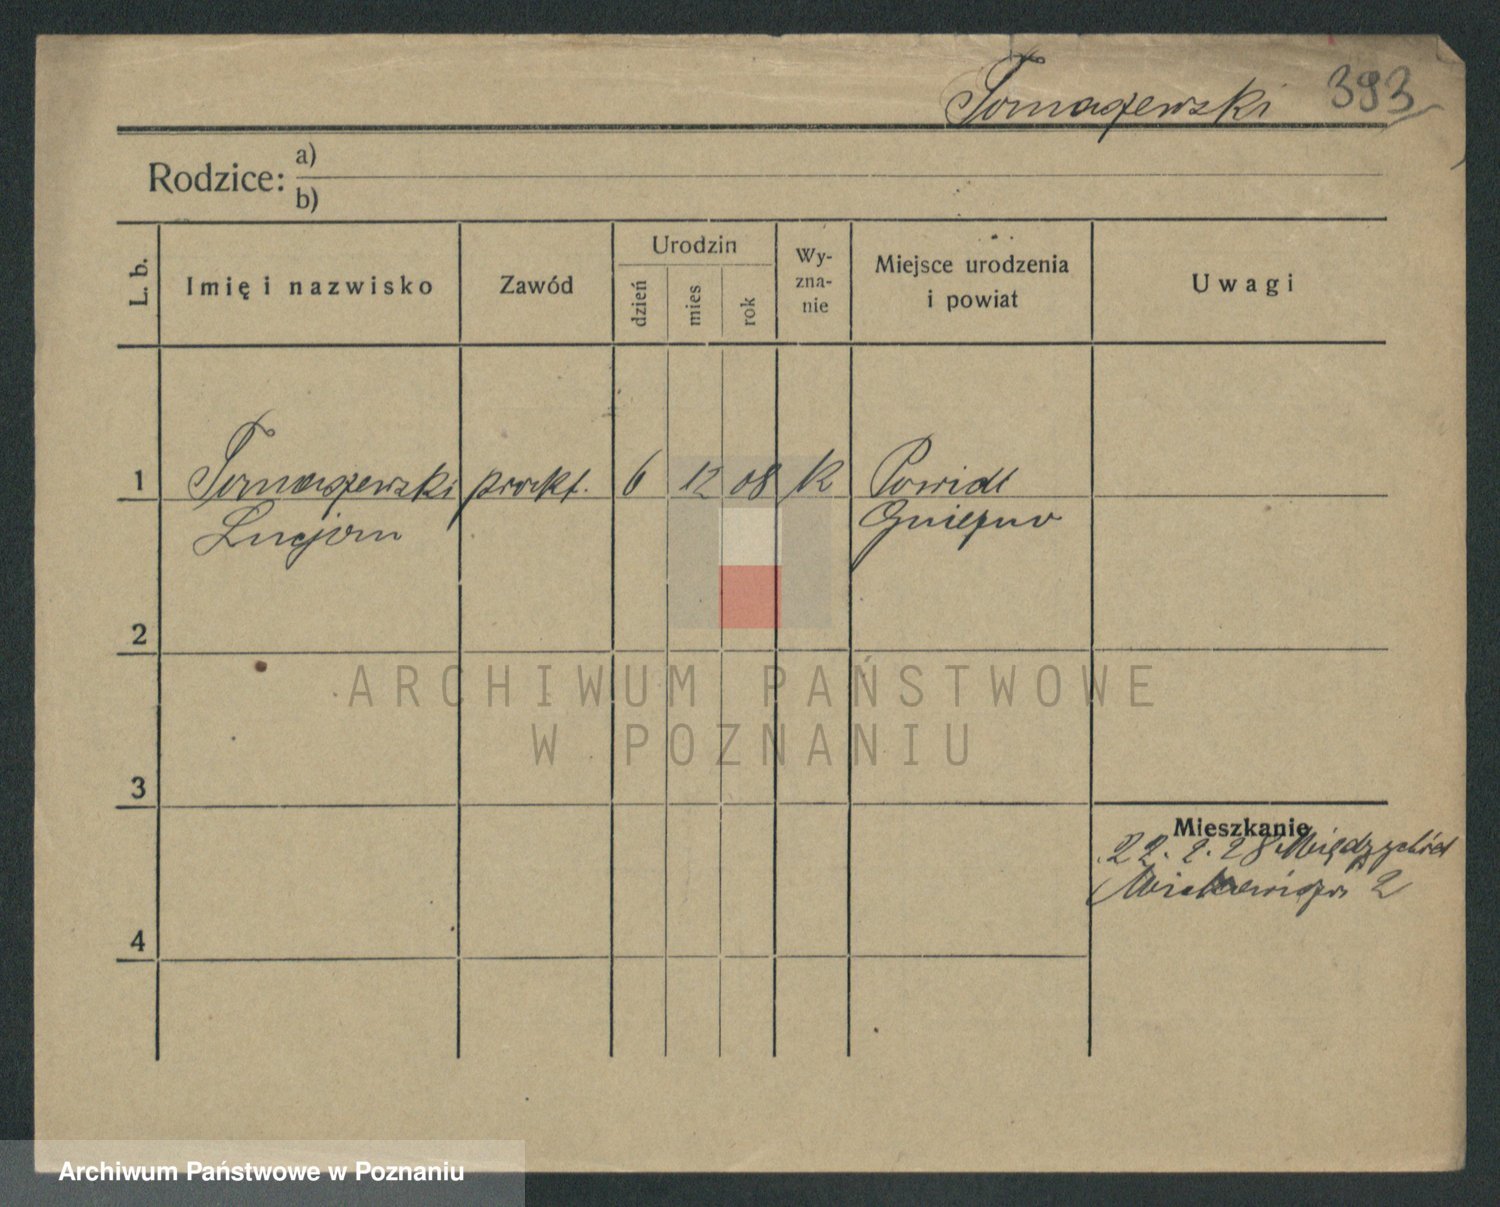 Tomaszewski 393
Rodzice: a)
b)
L. b.
Imię i nazwisko
Zawód
Urodzin
dzień
mies
rok
Wy-
zna-
nie
Miejsce urodzenia
i powiat
Uwagi
1 Tomaszewski prakt. 6 12 08 K Powidz
Lucjan Gniezno
2
3
4
Mieszkanie
22. 2. 28 Międzychód
Mickiewicza 2
ARCHIWUM PAŃSTWOWE
W POZNANIU
Archiwum Państwowe w Poznaniu